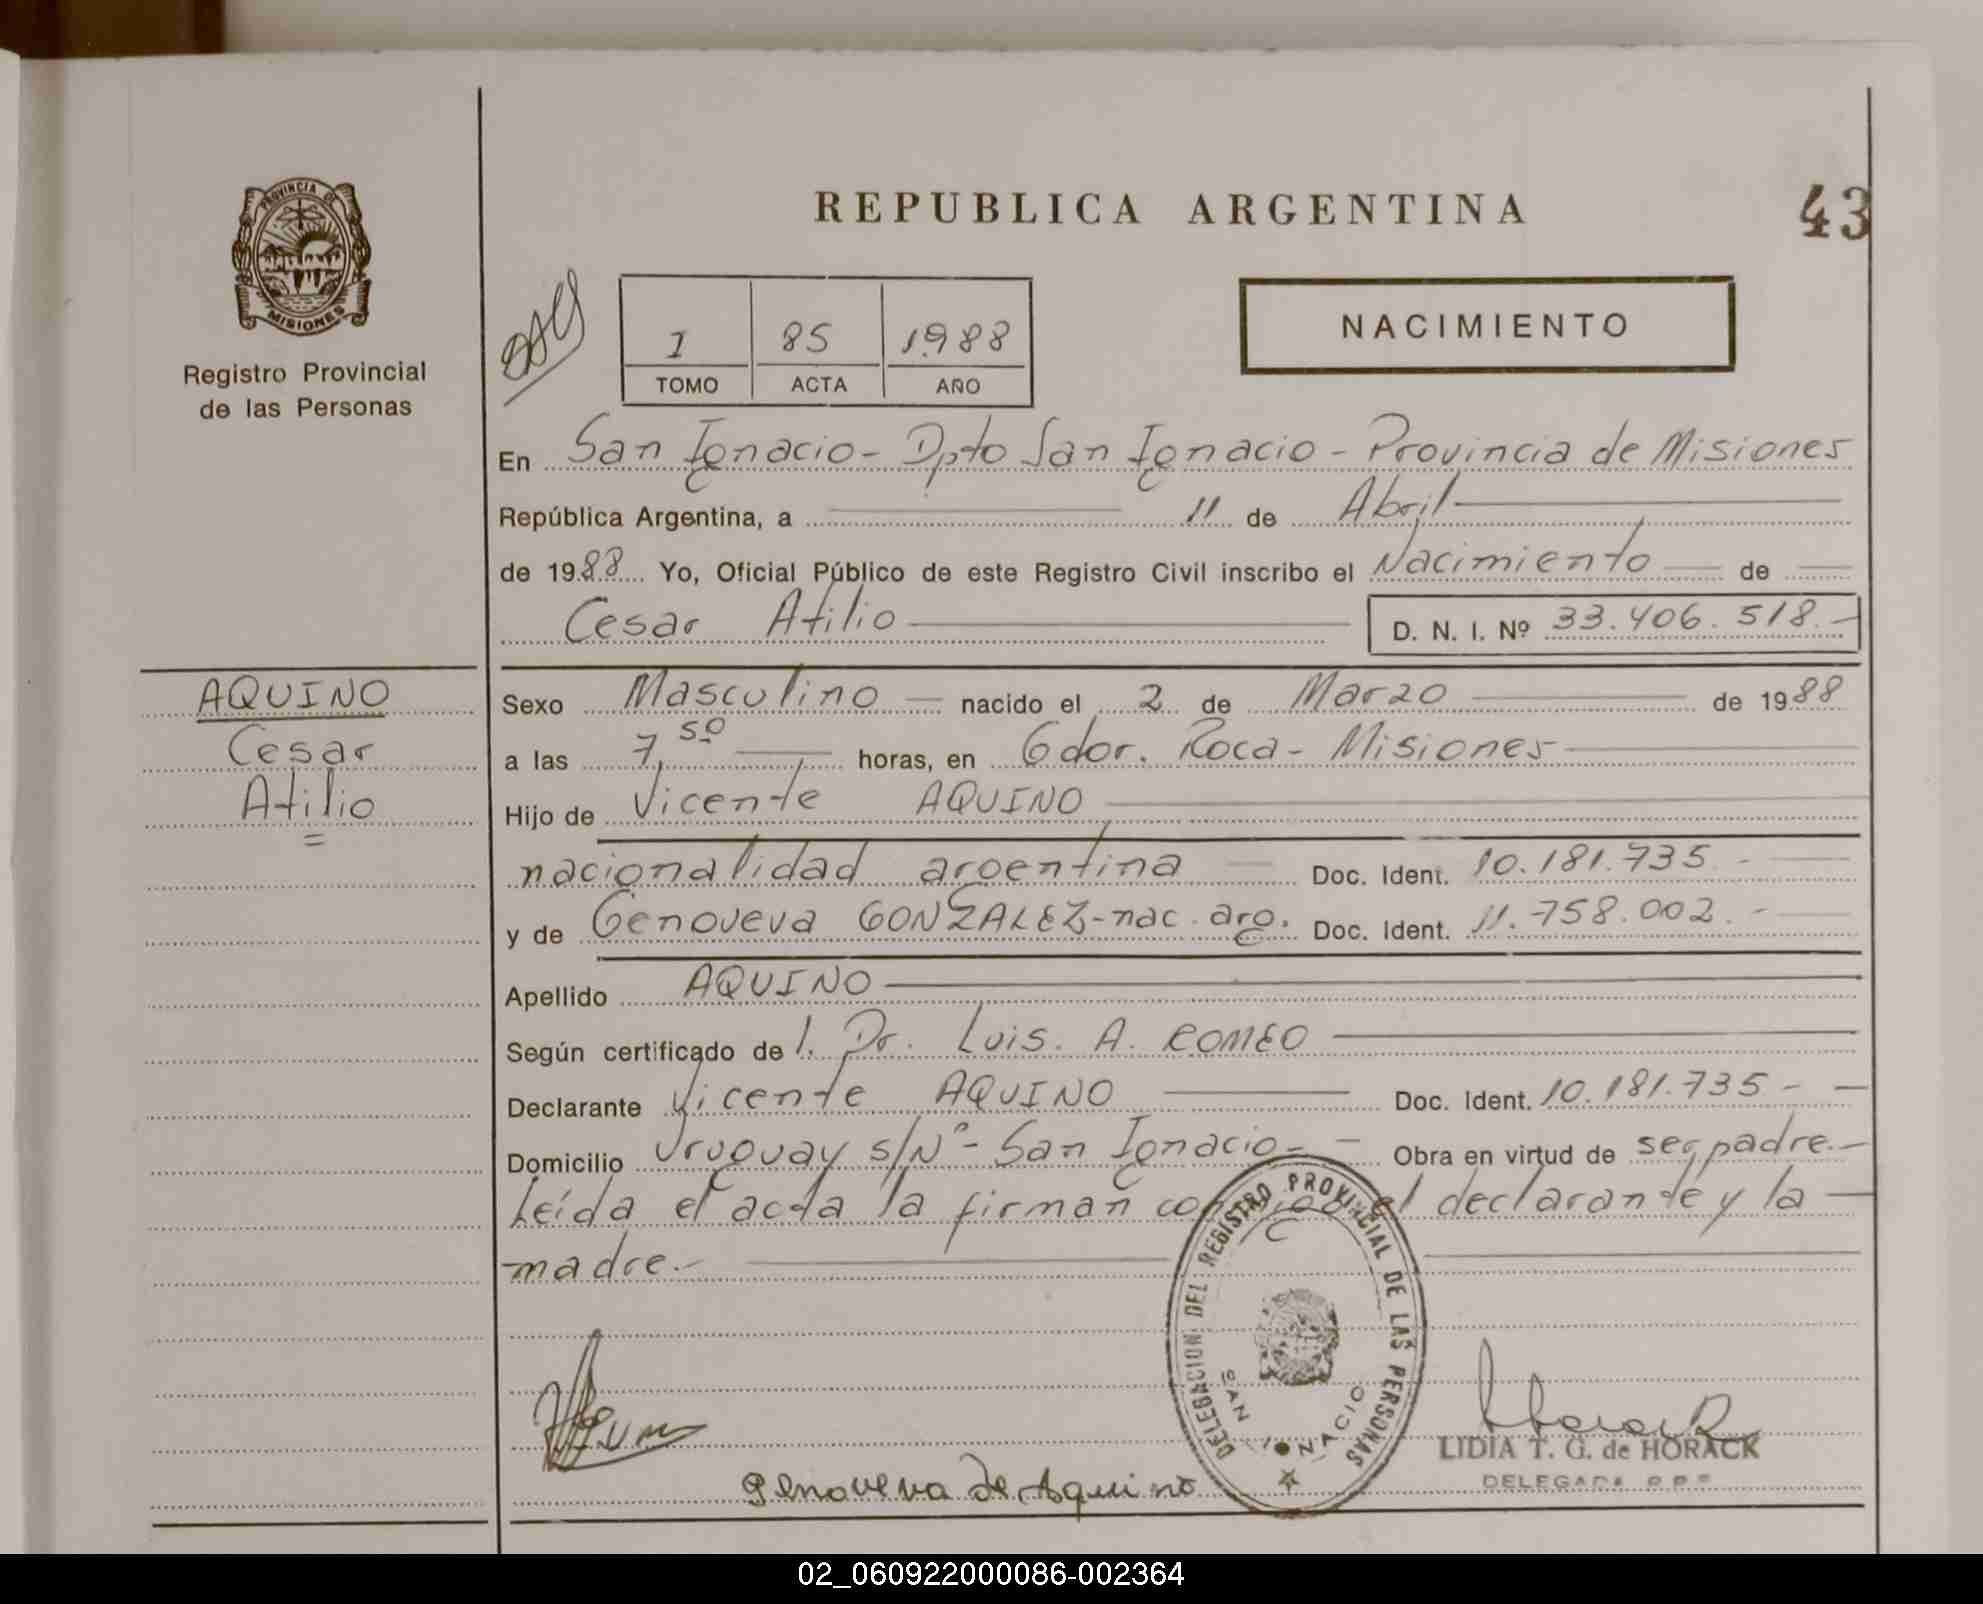 REPUBLICA ARGENTINA
43
PROVINCIA DE
MISIONES
Registro Provincial
de las Personas
NACIMIENTO
I 85 1988
TOMO ACTA AÑO
En San Ignacio - Dpto San Ignacio - Provincia de Misiones
República Argentina, a 11 de Abril
de 1988 Yo, Oficial Público de este Registro Civil inscribo el Nacimiento de
Cesar Atilio D. N. I. Nº 33.406.518.-
AQUINO
Cesar
Atilio
Sexo Masculino nacido el 2 de Marzo de 1988
a las 7,50 horas, en Gdor. Roca - Misiones
Hijo de Vicente AQUINO
nacionalidad argentina Doc. Ident. 10.181.735.-
y de Genoveva GONZALEZ - nac. arg. Doc. Ident. 11.758.002.-
Apellido AQUINO
Según certificado de l. Dr. Luis. A. ROMEO
Declarante Vicente AQUINO Doc. Ident. 10.181.735 -
Domicilio Uruguay s/Nº - San Ignacio - Obra en virtud de ser padre.-
Leída el acta la firman conmigo el declarante y la
madre.-
DELEGACION DEL REGISTRO PROVINCIAL DE LAS PERSONAS
SAN IGNACIO
Genoveva de Aquino
LIDIA T. G. de HORACK
DELEGADA R.P.P.
02_060922000086-002364